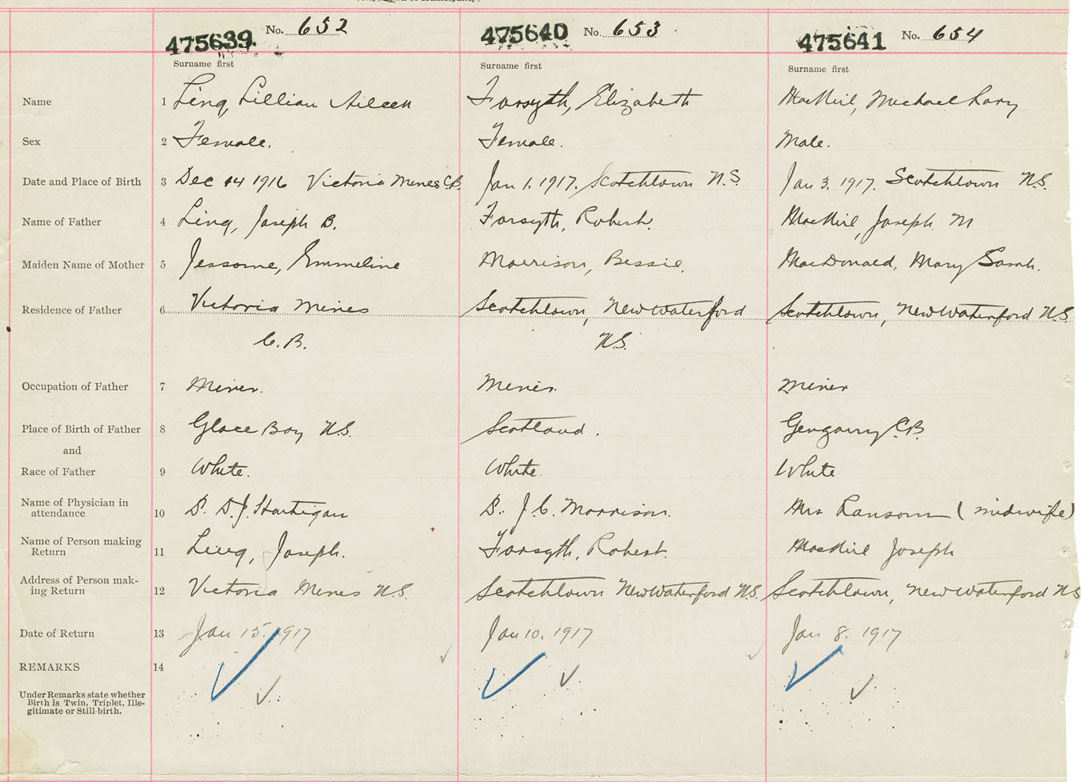 475639. No. 652 475640 No. 653 475641 No. 654
Surname first Surname first Surname first
Name 1 Ling, Lillian Aileen Forsyth, Elizabeth MacNeil, Michael
Sex 2 Female. Female. Male.
Date and Place of Birth 3 Dec 14 1916 Victoria Mines C.B. Jan 1. 1917. Scotchtown N.S. Jan 3. 1917. Scotchtown N.S.
Name of Father 4 Ling, Joseph B. Forsyth, Robert. MacNeil, Joseph M
Maiden Name of Mother 5 Jessome, Emmeline Morrison, Bessie. MacDonald, Mary Sarah.
Residence of Father 6 Victoria Mines Scotchtown, New Waterford Scotchtown, New Waterford N.S.
C.B. N.S.
Occupation of Father 7 Miner. Miner. Miner
Place of Birth of Father 8 Glace Bay N.S. Scotland. C.B.
and
Race of Father 9 White. White. White
Name of Physician in
attendance 10 D. D.J. Hartigan D. J.C. Morrison. Mrs Ransom (midwife)
Name of Person making
Return 11 Ling, Joseph. Forsyth, Robert. MacNeil Joseph
Address of Person mak-
ing Return 12 Victoria Mines N.S. Scotchtown New Waterford N.S. Scotchtown, New Waterford NS
Date of Return 13 Jan 15. 1917 Jan 10. 1917 Jan 8. 1917
REMARKS 14
Under Remarks state whether
Birth is Twin, Triplet, Ille-
gitimate or Still-birth.